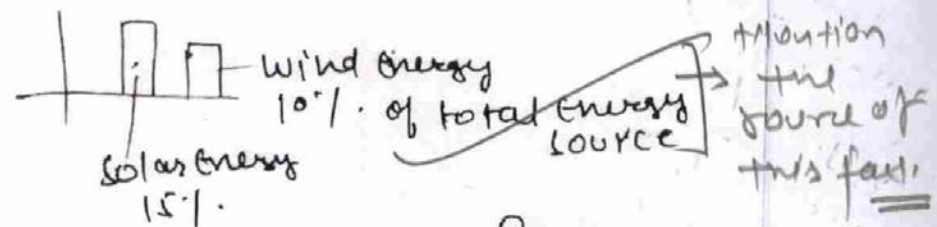 Wind Energy
10%. of total Energy
source
Solar Energy
15%.
Mention
the
source of
this fact.